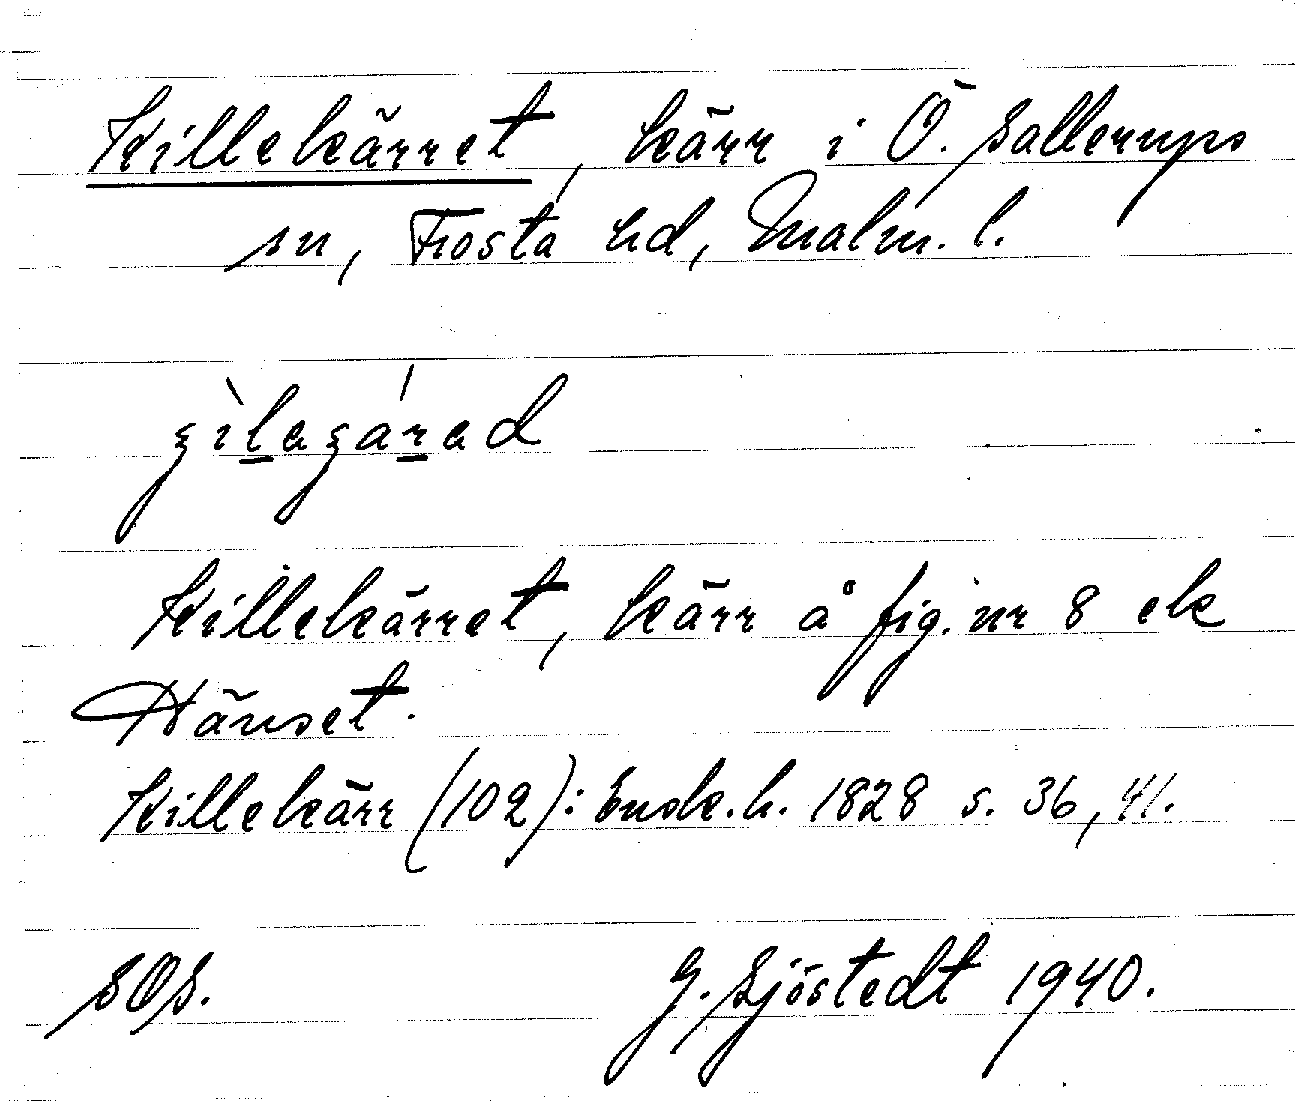 Killekärret, kärr i Ö. Sallerups
sn, Frosta hd, Malm. l.
Killekärret, kärr å fig. nr 8 ek
Hänset.
Killekärr (102): Ensk.h. 1828 s. 36, 41.
SOS. G. Sjöstedt 1940.